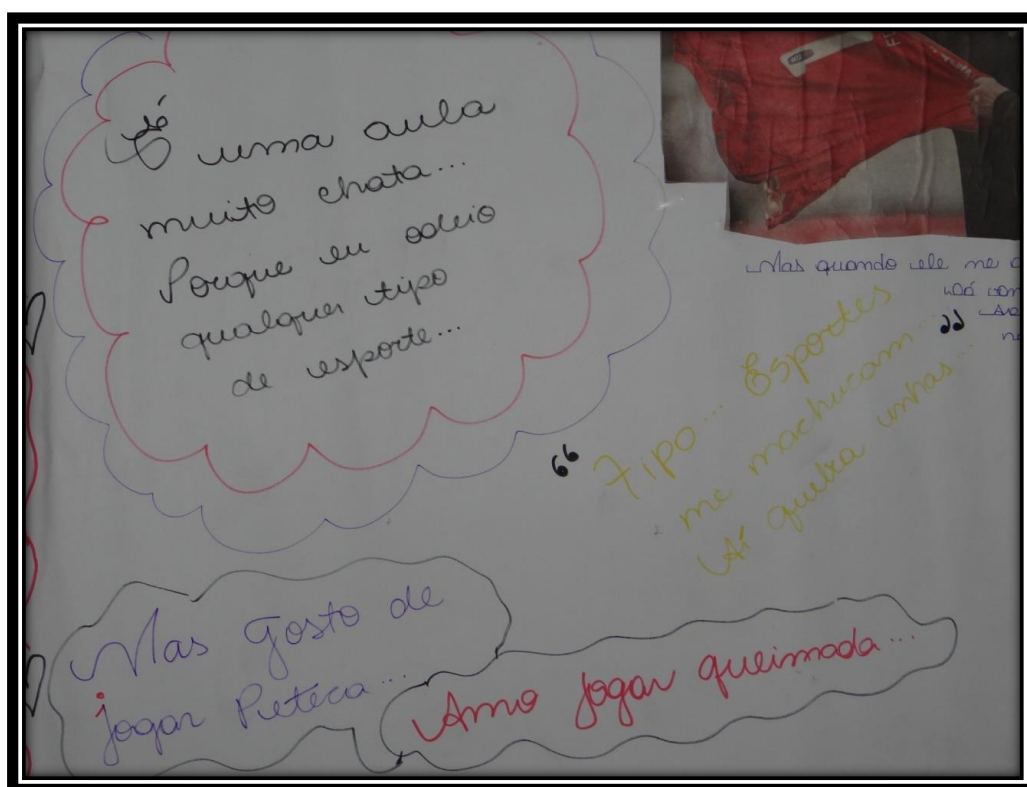 É uma aula
muito chata...
Porque eu odeio
qualquer tipo
de esporte...
Mas quando ele me
“ Tipo... Esportes
me machucam... ”
Aí quebra unhas...
Mas Gosto de
jogar Peteca...
Amo jogar queimada...